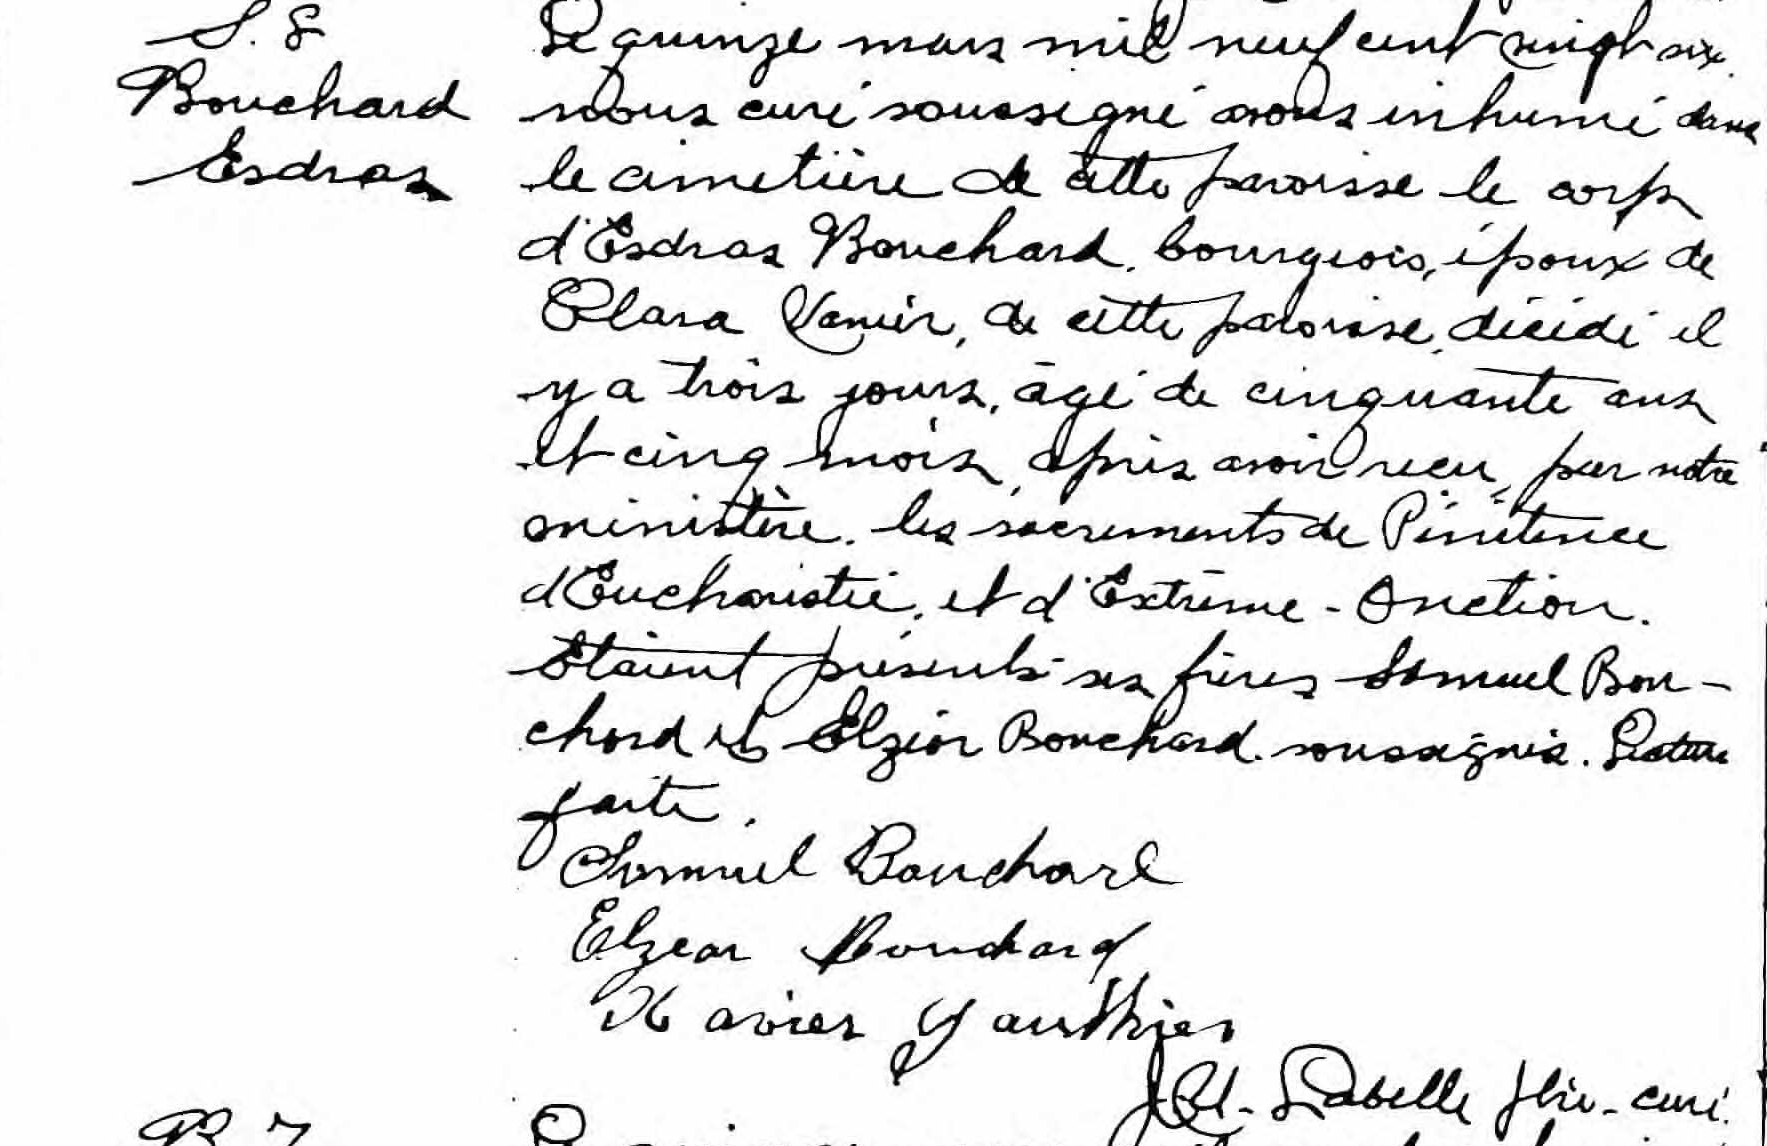 S. 8
Bouchard
Esdras
Le quinze mars mil neuf cent vingt-six
nous curé soussigné avons inhumé dans
le cimetière de cette paroisse le corps
d'Esdras Bouchard, bourgeois, époux de
Clara Vanier, de cette paroisse, décédé il
y a trois jours, âgé de cinquante ans
et cinq mois, après avoir reçu, par notre
ministère, les sacrements de Pénitence
d'Eucharistie, et d'Extrême-Onction.
Etaient présents ses frères Samuel Bou-
chard et Elzéar Bouchard soussignés. Lecture
faite.
Samuel Bouchard
Elzear Bouchard
Xavier Gauthier
Labelle Ptre-curé.
B. 7